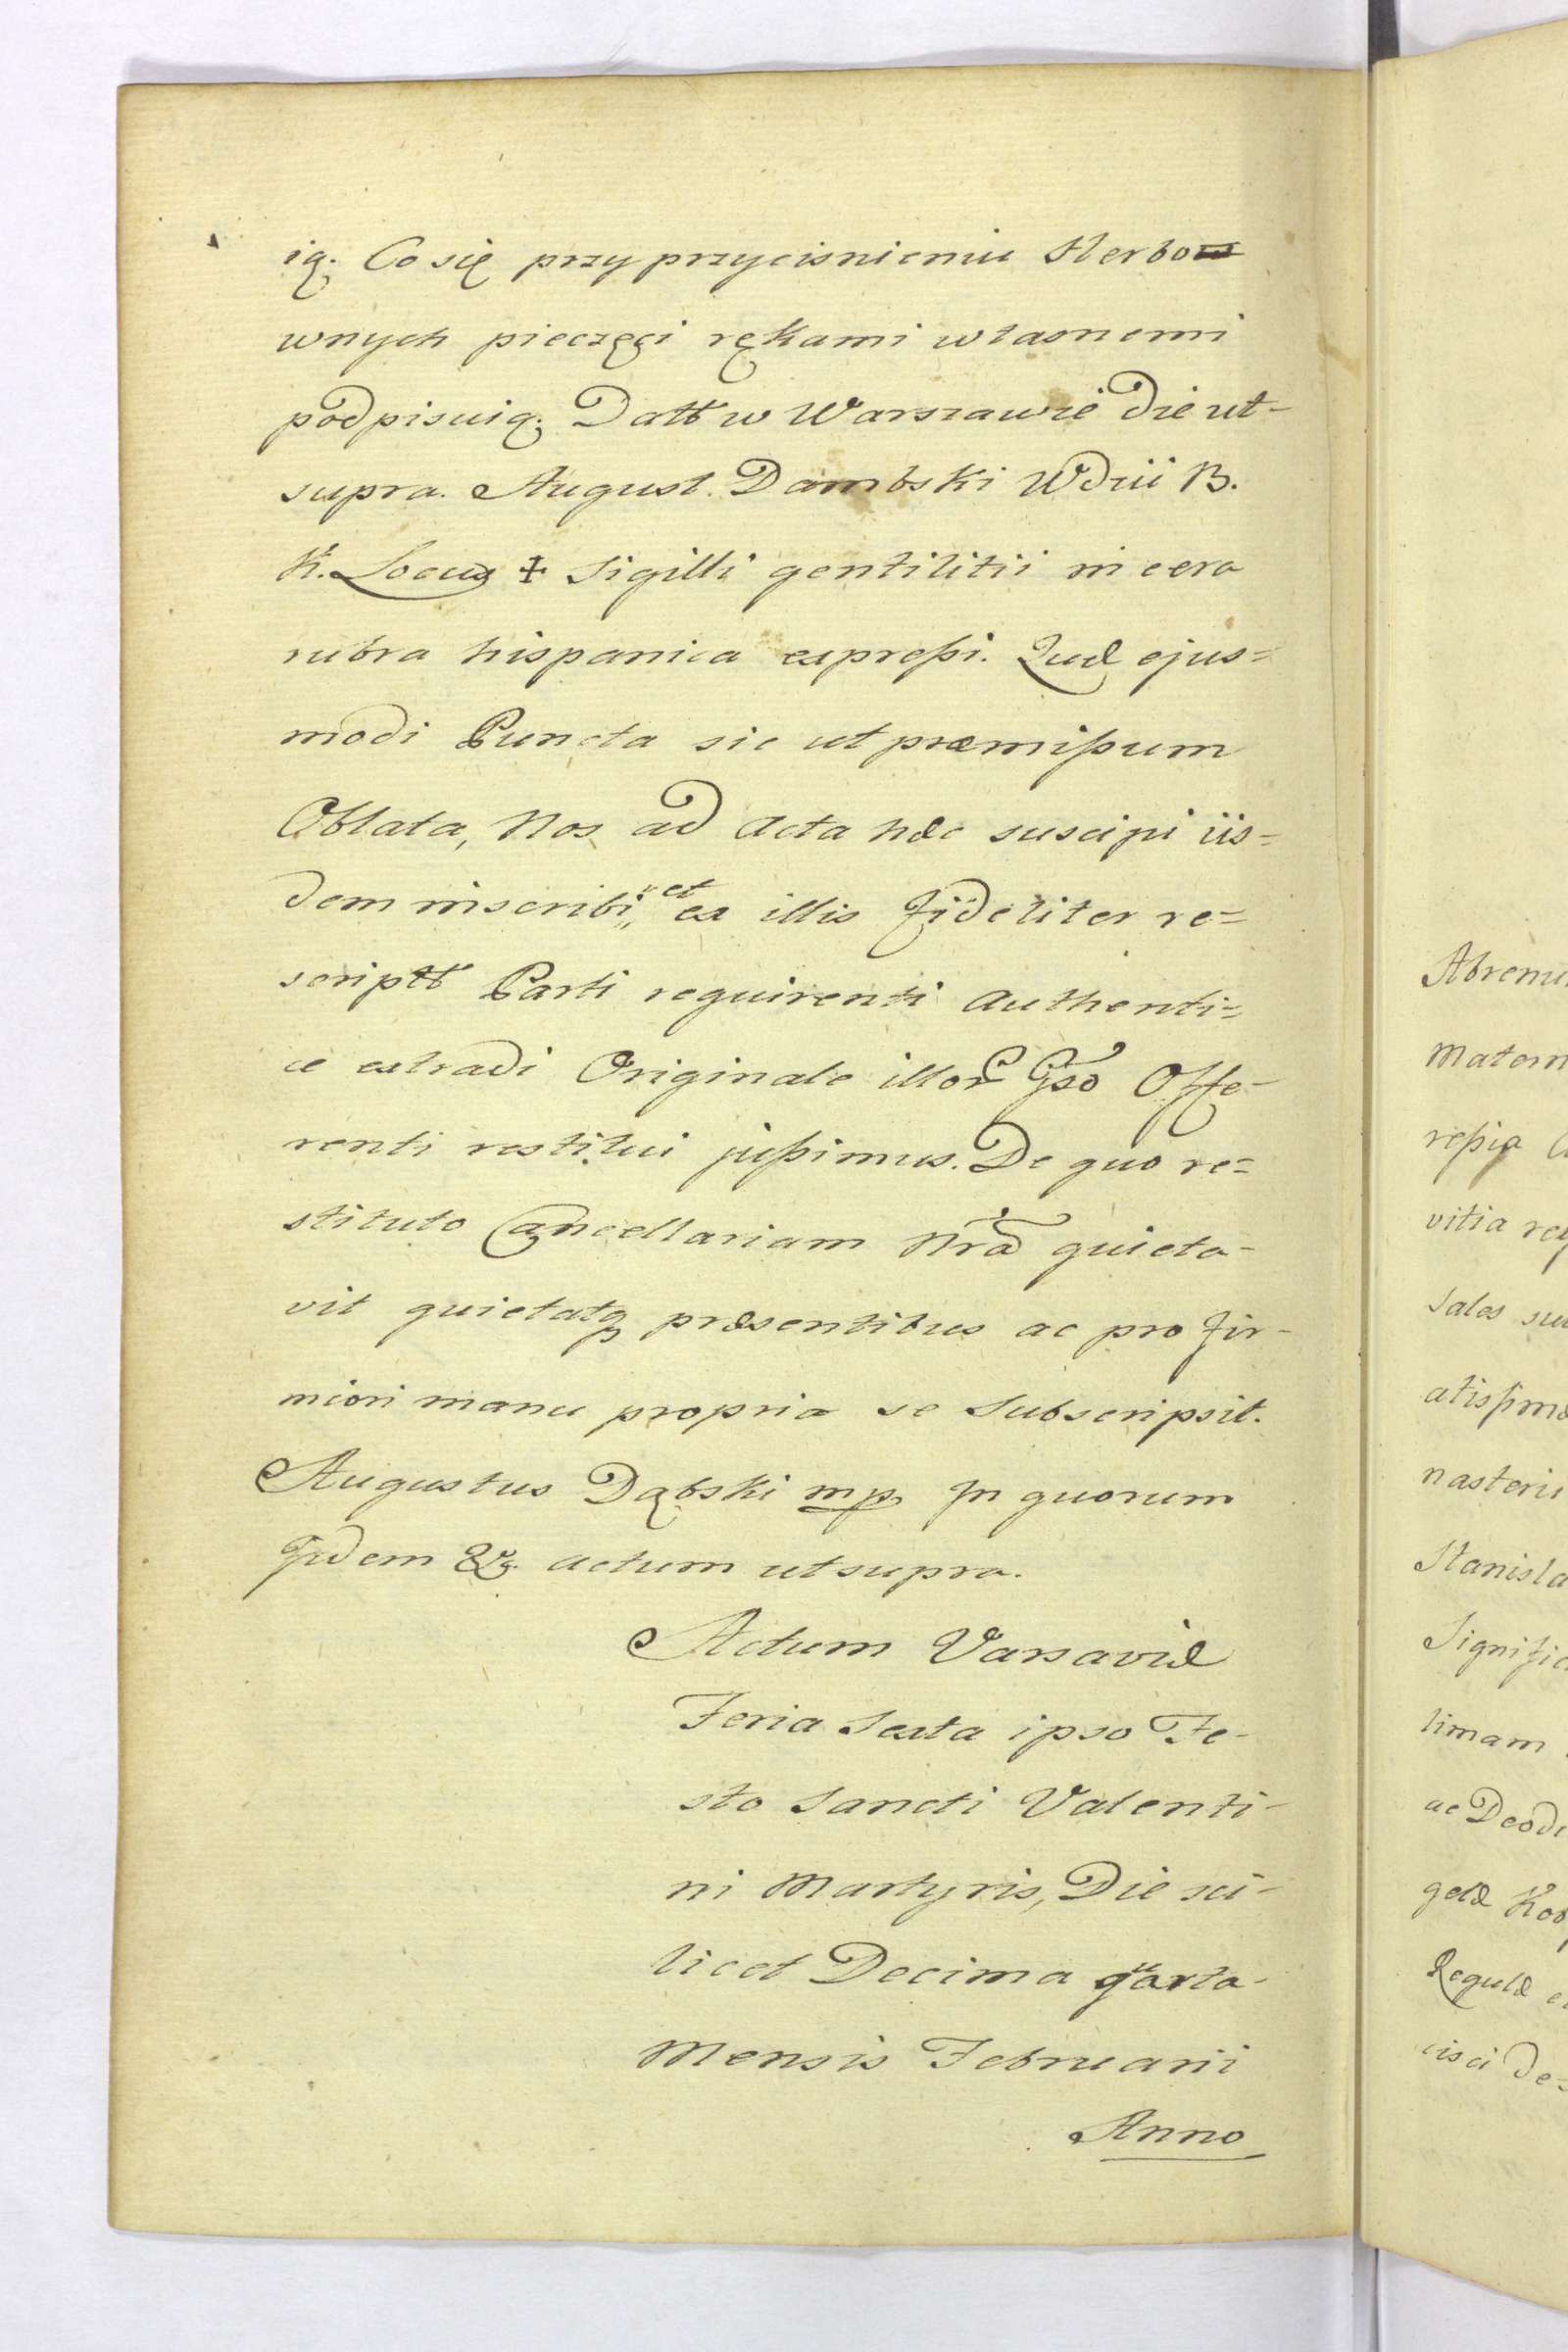 ią. Co się przy przycisnieniu Herbow
wnych pieczęci rękami własnemi
podpisuią. Datt w Warszawie Die ut-
supra. August. Dambski Wdzii B.
K. Locus ‡ Sigilli gentilitii in cera
rubra hispanica expreßi. Quæ ejus=
modi Puncta sic ut præmißum
Oblata, Nos ad Acta hæc suscipi iis=
dem inscribi,, et ex illis fideliter re=
scriptt Parti requirenti Authenti=
ce extradi Originale illor Gso Offe-
renti restitui jußimus. De quo re=
stituto Cancellariam Nra quieta-
vit quietatq præsentibus ac pro fir-
miori manu propria se Subscripsit.
Augustus Dąbski mp. In quorum
fidem &c. actum ut supra.
Actum Varsaviæ
Feria Sexta ipso Fe-
sto Sancti Valenti-
ni Martyris, Die sci-
licet Decima quarta-
Mensis Februarii
Anno
Abrenu
Matern
reßia
vitia req
sales su
atissimæ
nasterii
Stanisla
Signific
timam
ac Deodi
gelæ Kos
Regulæ e
cisci de=